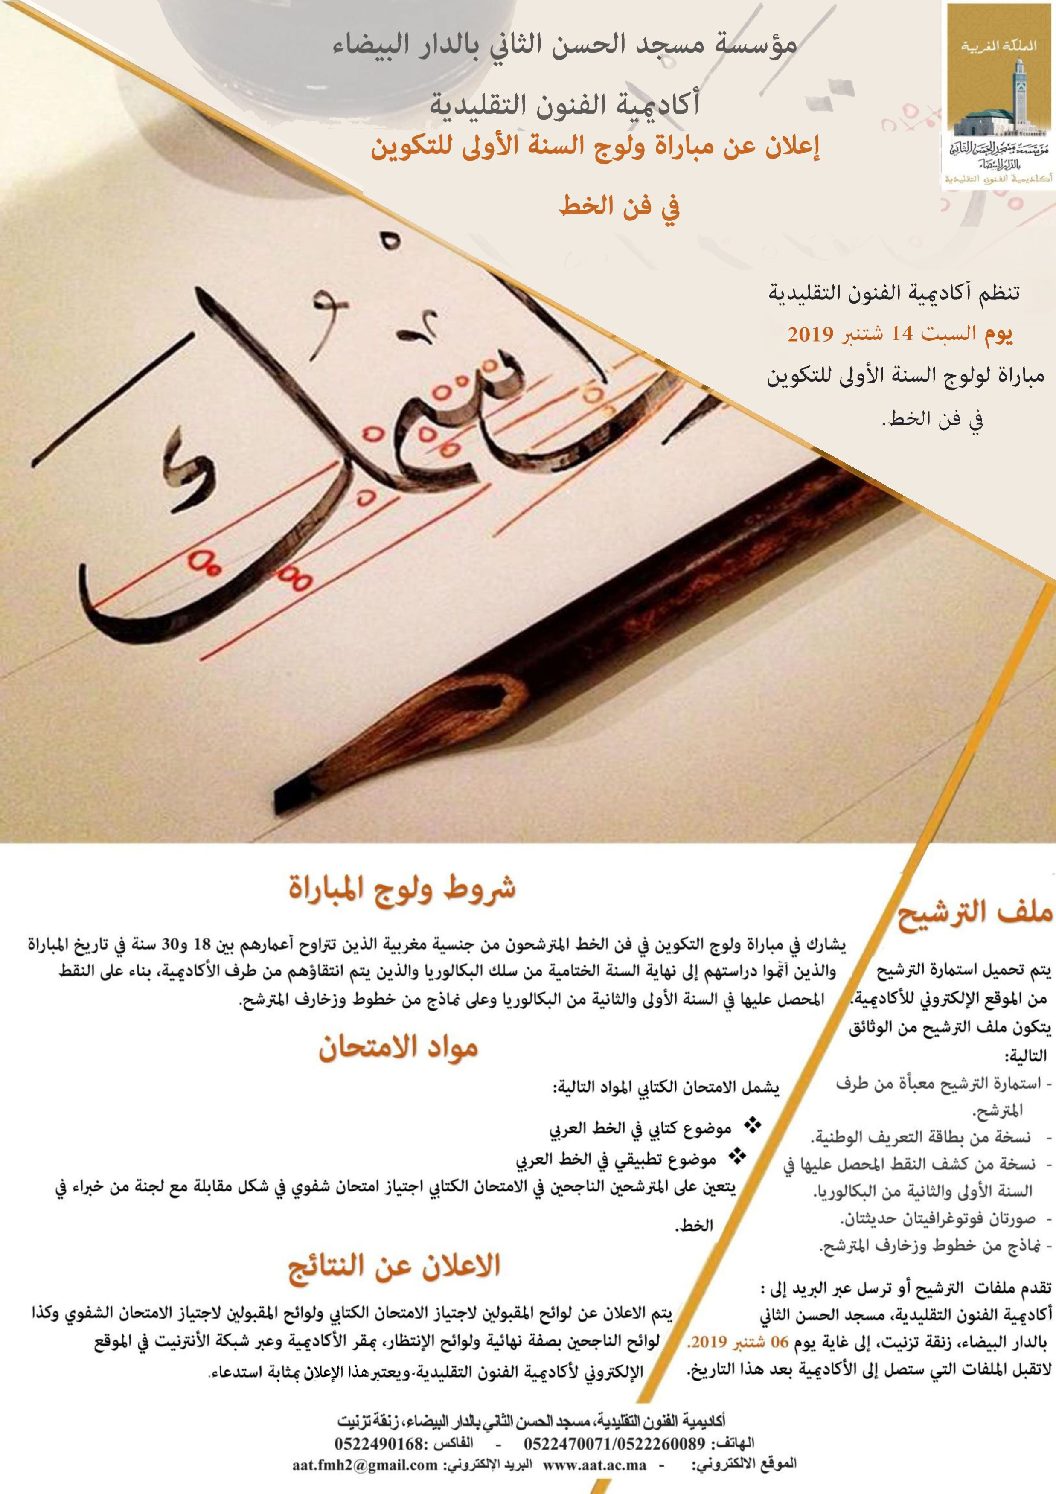 مؤسسة مسجد الحسن الثاني بالدار البيضاء
أكاديمية الفنون التقليدية
إعلان عن مباراة ولوج السنة الأولى للتكوين
في فن الخط
المملكة المغربية
مؤسسة مسجد الحسن الثاني
بالدار البيضاء
أكاديمية الفنون التقليدية
تنظم أكاديمية الفنون التقليدية
يوم السبت 14 شتنبر 2019
مباراة لولوج السنة الأولى للتكوين
في فن الخط.
شروط ولوج المباراة
يشارك في مباراة ولوج التكوين في فن الخط المترشحون من جنسية مغربية الذين تتراوح أعمارهم بين 18 و30 سنة في تاريخ المباراة
والذين أتموا دراستهم إلى نهاية السنة الختامية من سلك البكالوريا والذين يتم انتقاؤهم من طرف الأكاديمية، بناء على النقط
المحصل عليها في السنة الأولى والثانية من البكالوريا وعلى نماذج من خطوط وزخارف المترشح.
مواد الامتحان
يشمل الامتحان الكتابي المواد التالية:
❖ موضوع كتابي في الخط العربي
❖ موضوع تطبيقي في الخط العربي
يتعين على المترشحين الناجحين في الامتحان الكتابي اجتياز امتحان شفوي في شكل مقابلة مع لجنة من خبراء في
الخط.
الاعلان عن النتائج
يتم الاعلان عن لوائح المقبولين لاجتياز الامتحان الكتابي ولوائح المقبولين لاجتياز الامتحان الشفوي وكذا
لوائح الناجحين بصفة نهائية ولوائح الإنتظار، بمقر الأكاديمية وعبر شبكة الأنترنيت في الموقع
الإلكتروني لأكاديمية الفنون التقليدية.ويعتبر هذا الإعلان بمثابة استدعاء.
ملف الترشيح
يتم تحميل استمارة الترشيح
من الموقع الإلكتروني للأكاديمية.
يتكون ملف الترشيح من الوثائق
التالية:
- استمارة الترشيح معبأة من طرف
المترشح.
- نسخة من بطاقة التعريف الوطنية.
- نسخة من كشف النقط المحصل عليها في
السنة الأولى والثانية من البكالوريا.
- صورتان فوتوغرافيتان حديثتان.
- نماذج من خطوط وزخارف المترشح.
تقدم ملفات الترشيح أو ترسل عبر البريد إلى :
أكاديمية الفنون التقليدية، مسجد الحسن الثاني
بالدار البيضاء، زنقة تزنيت، إلى غاية يوم 06 شتنبر 2019.
لاتقبل الملفات التي ستصل إلى الأكاديمية بعد هذا التاريخ.
أكاديمية الفنون التقليدية، مسجد الحسن الثاني بالدار البيضاء، زنقة تزنيت
الهاتف: 0522470071/0522260089 - الفاكس :0522490168
الموقع الالكتروني: - www.aat.ac.ma البريد الإلكتروني: aat.fmh2@gmail.com